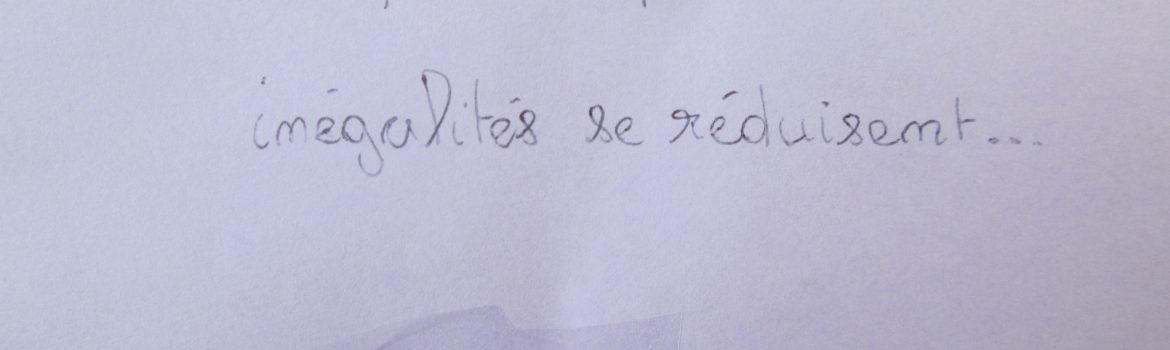 inégalités se réduisent...